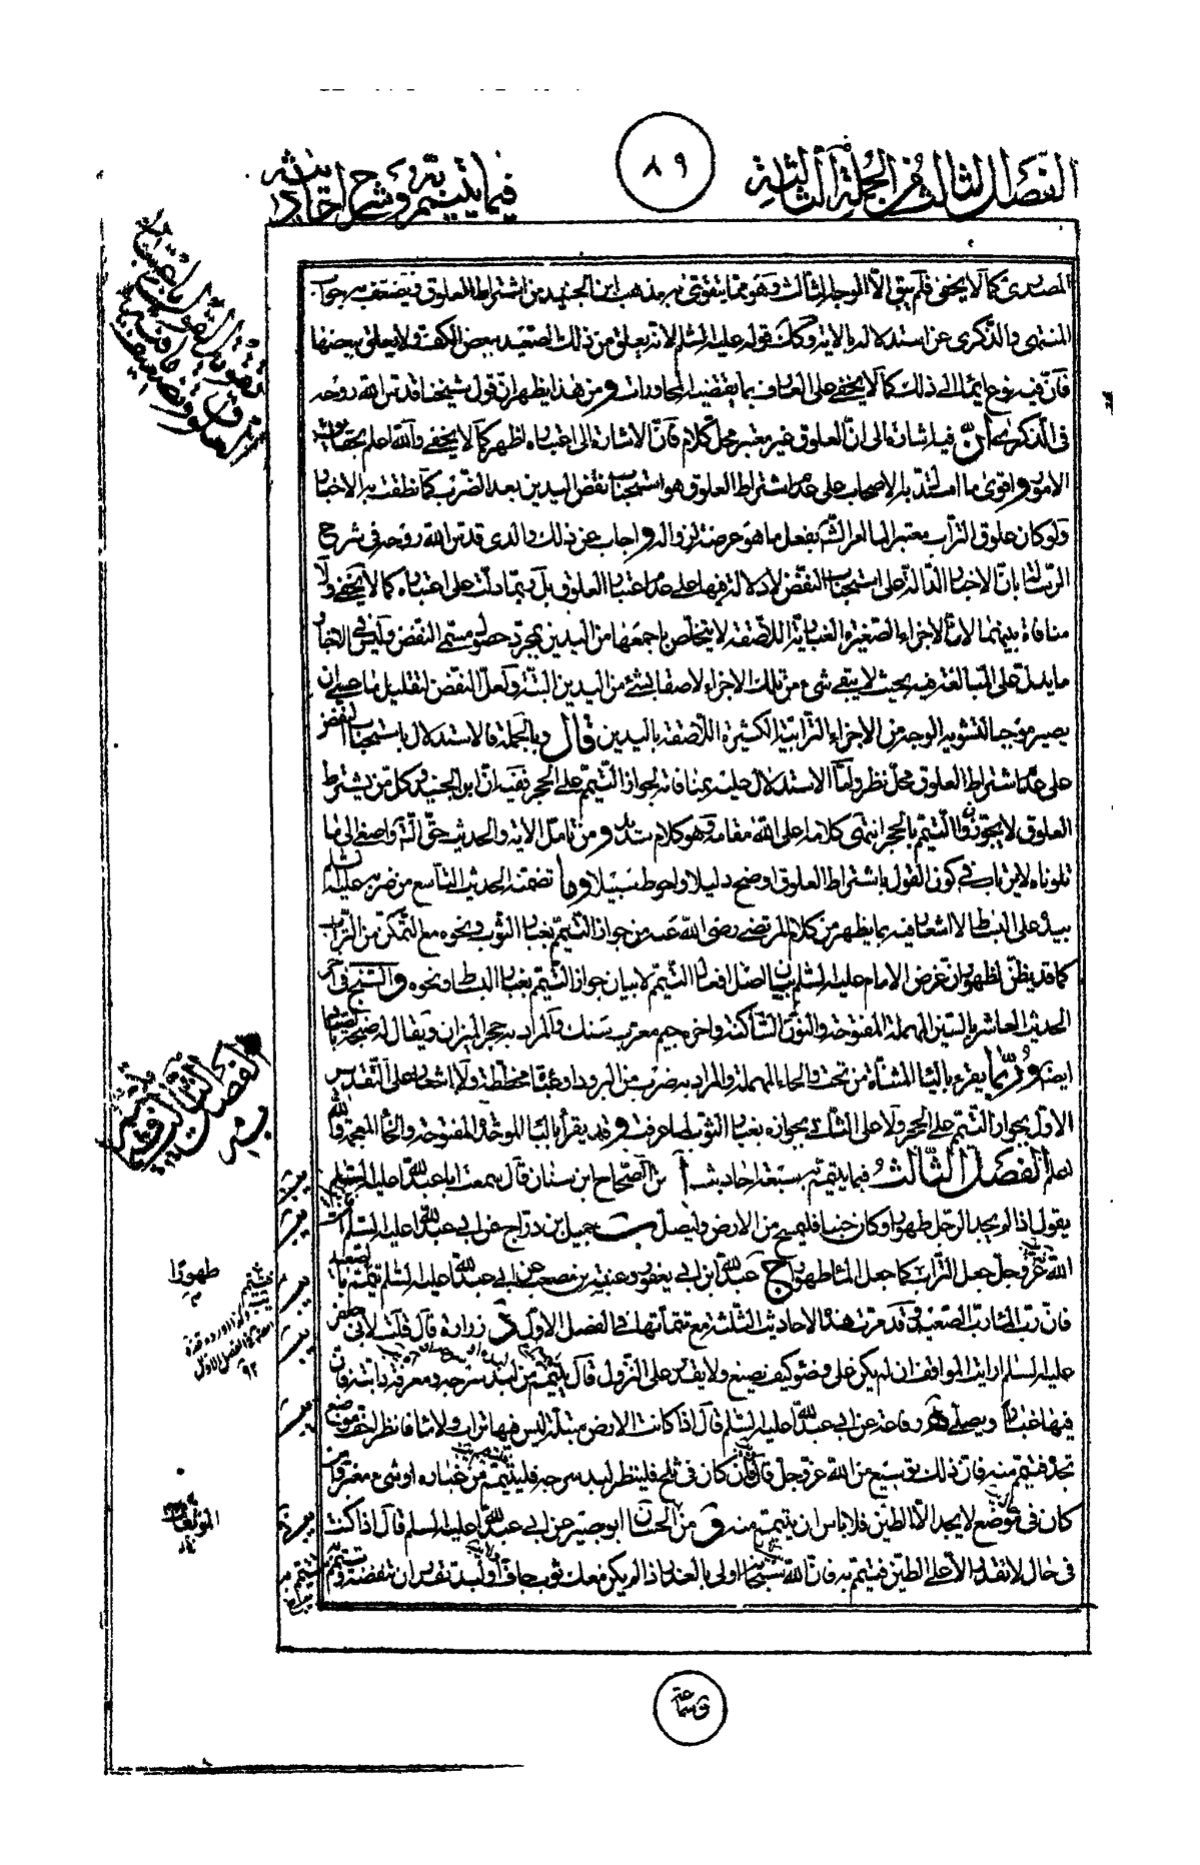 الفصل الثالث من الجملة الثالثة
٨٩
فيما يتيمم به وشرح أحاديثه
كما لا يخفى فلم يبق الا الوجه الثالث وهو مما يتقوى به مذهب ابن الجنيد من اشتراط العلوق ويضعف به جواب
المنتهى والذكرى عن استدلاله بالاية وكك قوله عليه السلم لانه يعلق من ذلك الصعيد ببعض الكف ولا يعلق ببعضها
فان فيه نوع ايماء الى ذلك كما لا يخفى على العارف بما يقتضيه المحاورات ومن هذا يظهر ان قول شيخنا قدس الله روحه
فى الذكرى ان فيه اشارة الى ان العلوق غير معتبر محل كلام فان الاشارة الى اعتباره اظهر كما لا يخفى والله اعلم بحقايق
الامور واقوى ما استدل به الاصحاب على عدم اشتراط العلوق هو استحباب نفض اليدين بعد الضرب كما نطقت به الاخبار
ولو كان علوق التراب معتبرا لما امر الشارع بفعل ما هو عرضة لزواله واجاب عن ذلك والدى قدس الله روحه فى شرح
الرسالة بان الاخبار الدالة على استحباب النفض لا دلالة فيها على عدم اعتبار العلوق بل ربما دلت على اعتباره كما لا يخفى ولا
منافاة بينهما لان الاجزاء الصغيرة الغبارية اللاصقة لا يتخلص باجمعها من اليدين بمجرد حصول مسمى النفض وليس فى الاخبار
ما يدل على المبالغة فيه بحيث لا يبقى شىء من تلك الاجزاء لاصقا بشىء من اليدين البتة ولعل النفض لتقليل ما عسى ان
يصير موجبا لتشويه الوجه من الاجزاء الترابية الكثيرة اللاصقة باليدين قال وبالجملة فالاستدلال باستحباب النفض
على عدم اشتراط العلوق محل نظر واما الاستدلال عليه بمنافاته لجواز التيمم على الحجر ففيه ان ابن الجنيد وكل من يشترط
العلوق لا يجوزون التيمم بالحجر انتهى كلامه اعلى الله مقامه وهو كلام سديد ومن تامل الاية والحديث حق التامل واصغى الى ما
تلوناه لا يرتاب فى كون القول باشتراط العلوق اوضح دليلا واحوط سبيلا وما تضمنه الحديث التاسع من ضربه عليه السلم
بيده على البساط لا اشعار فيه بما يظهر من كلام المرتضى رضى الله عنه من جواز التيمم بغبار الثوب ونحوه مع التمكن من التراب
كما قد يظن لظهور ان غرض الامام عليه السلم بيان اصل افعال التيمم لا بيان جواز التيمم بغبار البساط ونحوه والسنج فى اخر
الحديث العاشر بالسين المهملة المفتوحة والنون الساكنة واخره جيم معرب سنك والمراد به حجر الميزان ويقال له صنجة بالصاد
ايضا وربما يقرء بالياء المثناة من تحت والحاء المهملة والمراد به ضرب من البرود او عباءة مخططة ولا اشعار على التقدير
الاول بجواز التيمم على الحجر ولا على الثانى بجوازه بغبار الثوب لما عرفت وقد يقرأ بالباء الموحدة المفتوحة والخاء المعجمة والله
اعلم الفصل الثالث فيما يتيمم به سبعة احاديث ا من الصحاح ابن سنان قال سمعت ابا عبد الله عليه السلم
يقول اذا لم يجد الرجل طهورا وكان جنبا فليمسح من الارض وليصل ب جميل بن دراج عن ابى عبد الله عليه السلم ان
الله عز وجل جعل التراب كما جعل الماء طهورا ج عبد الله ابن ابى يعفور وعنبسة بن مصعب عن ابى عبد الله عليه السلم تيمم بالصعيد
فان رب الماء رب الصعيد قد مرت هذه الاحاديث الثلثة مع تتماتها فى الفصل الاول د زرارة قال قلت لابى جعفر
عليه السلم ارايت المواقف ان لم يكن على وضوء كيف يصنع ولا يقدر على النزول قال يتيمم من لبد سرجه ومعرفة دابته فان
فيها غبارا ويصلى ه رفاعة عن ابى عبد الله عليه السلم قال اذا كانت الارض مبتلة ليس فيها تراب ولا ماء فانظر اجف موضع
تجده فتيمم منه فان ذلك توسيع من الله عز وجل قال فان كان فى ثلج فلينظر لبد سرجه فليتيمم من غباره او شىء مغبر وان
كان فى موضع لا يجد الا الطين فلا باس ان يتيمم منه و من الحسان ابو بصير عن ابى عبد الله عليه السلم قال اذا كنت
فى حال لا تقدر الا على الطين فتيمم به فان الله سبحانه اولى بالعذر اذا لم يكن معك ثوب جاف او لبد تقدر ان تنفضه وتتيمم
الفصل الثالث فيما يتيمم به
طهورا